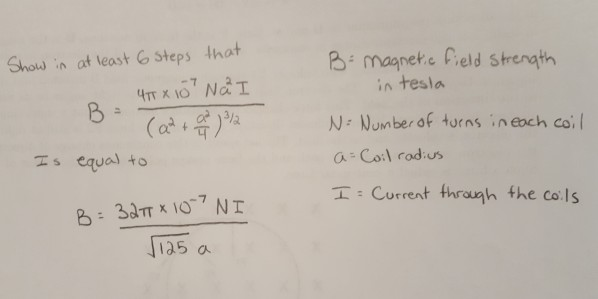 Show in at least 6 steps that
B = 4π x 10⁻⁷ Na²I / (a² + a²/4)^3/2
Is equal to
B = 32π x 10⁻⁷ NI / √125 a
B = magnetic field strength
in tesla
N = Number of turns in each coil
a = Coil radius
I = Current through the coils